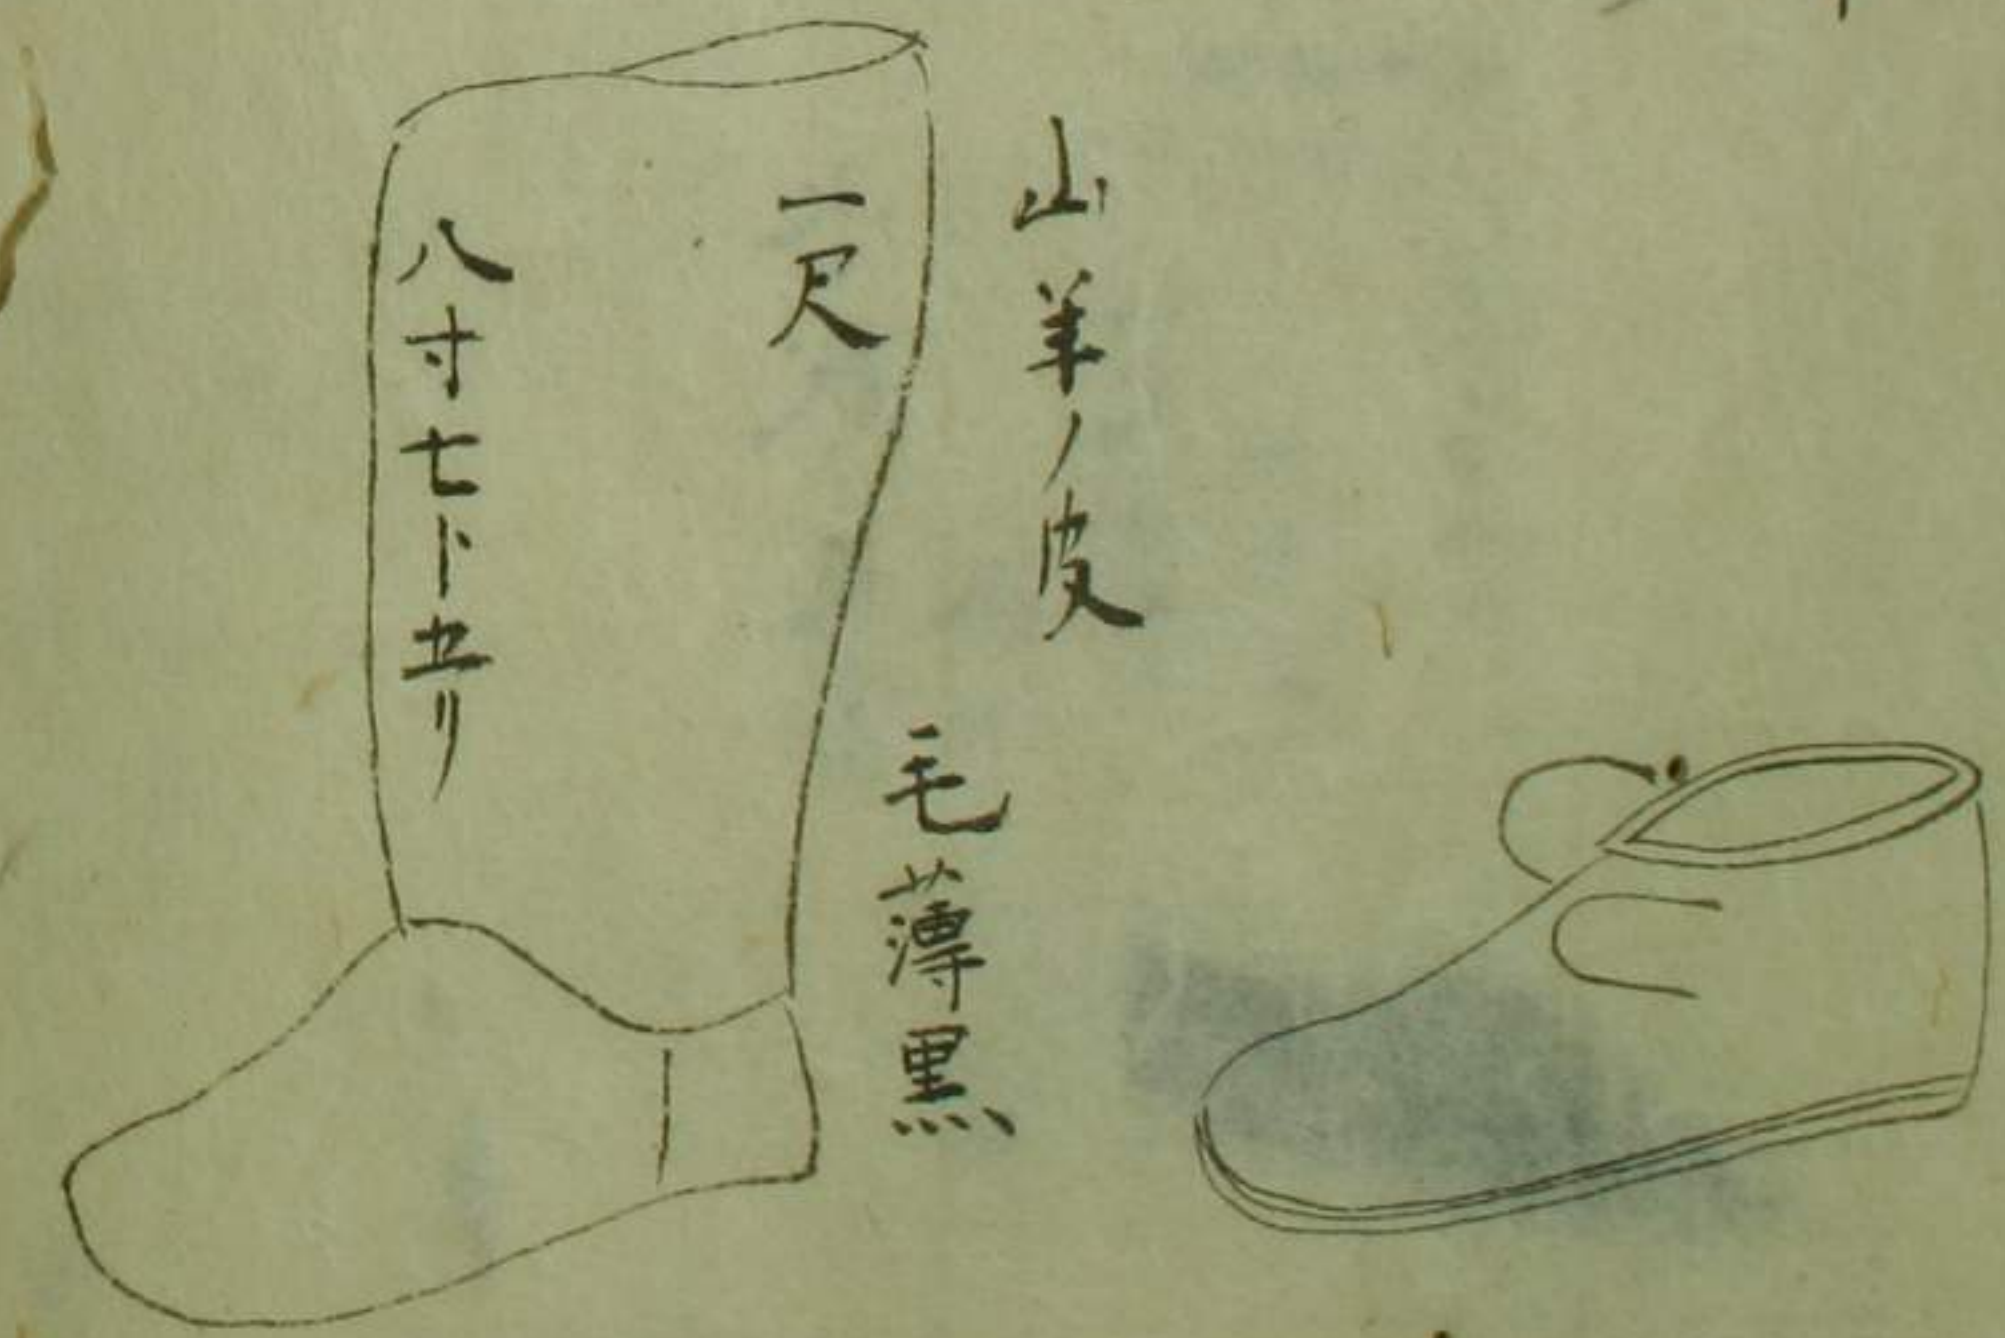 山羊ノ皮
毛薄黒
一尺
八寸七卜五リ